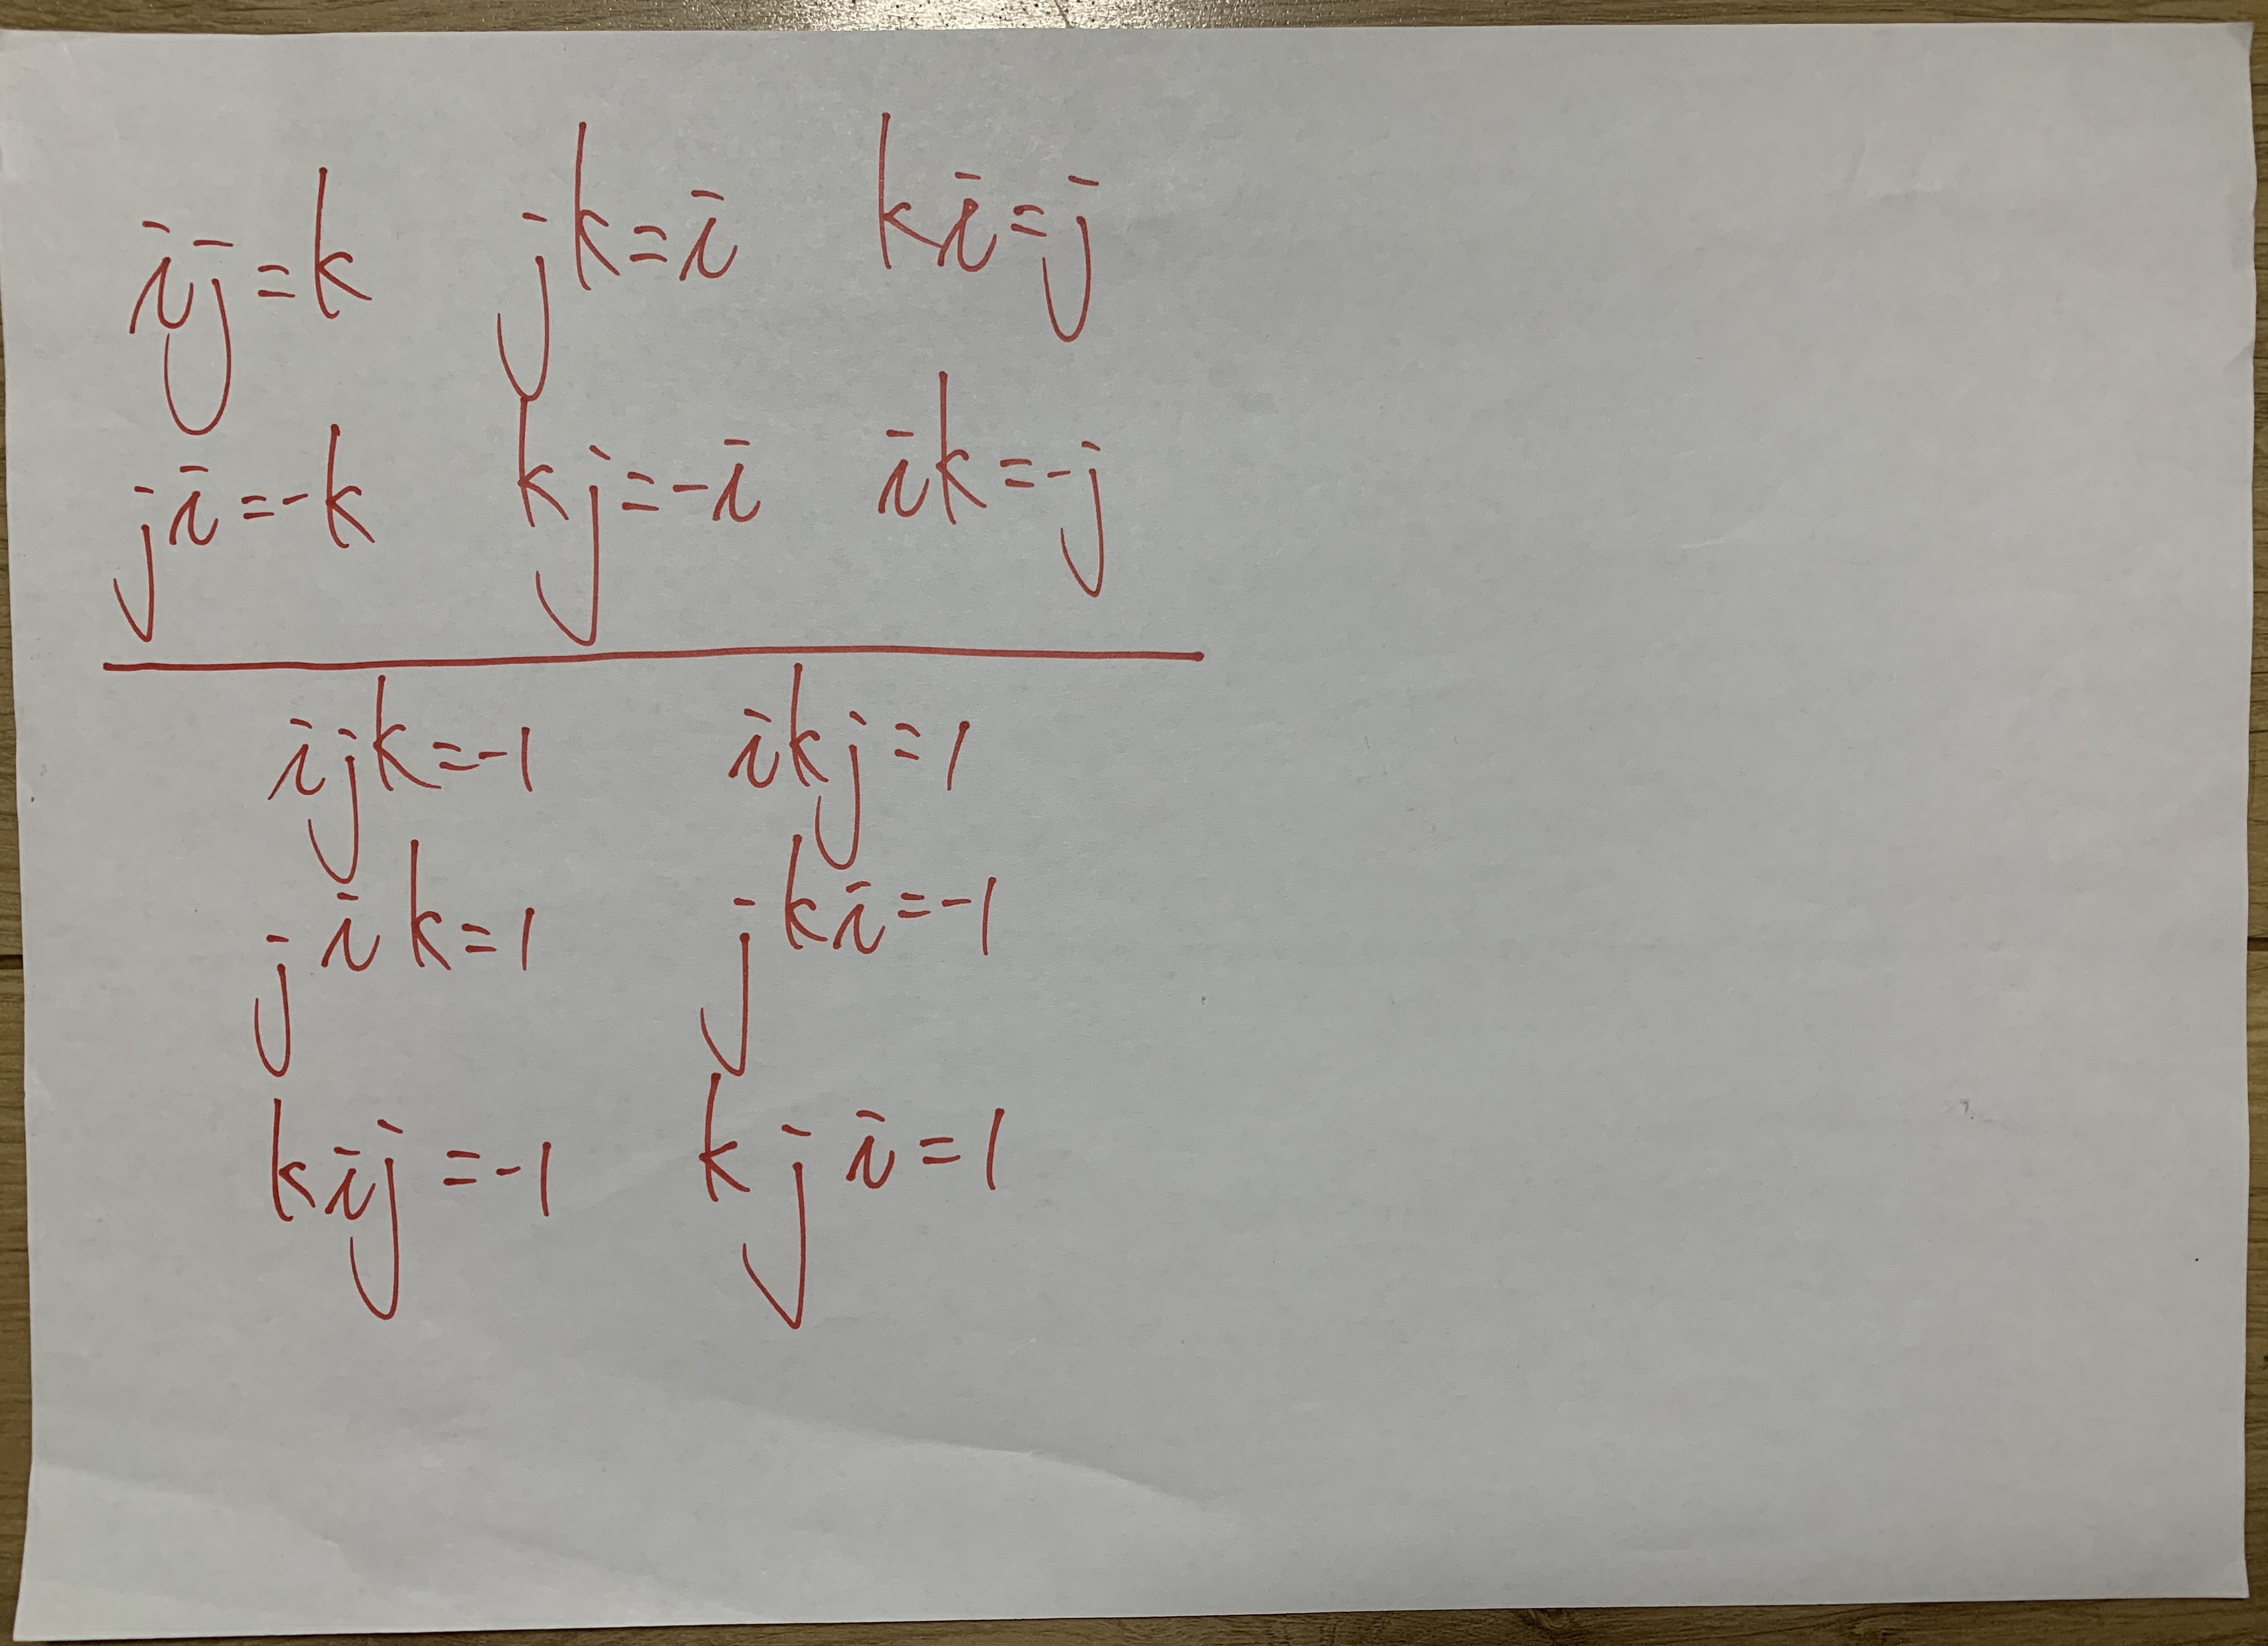 ij=k jk=i ki=j
ji=-k kj=-i ik=-j
ijk=-1 ikj=1
jik=1 jki=-1
kij=-1 kji=1